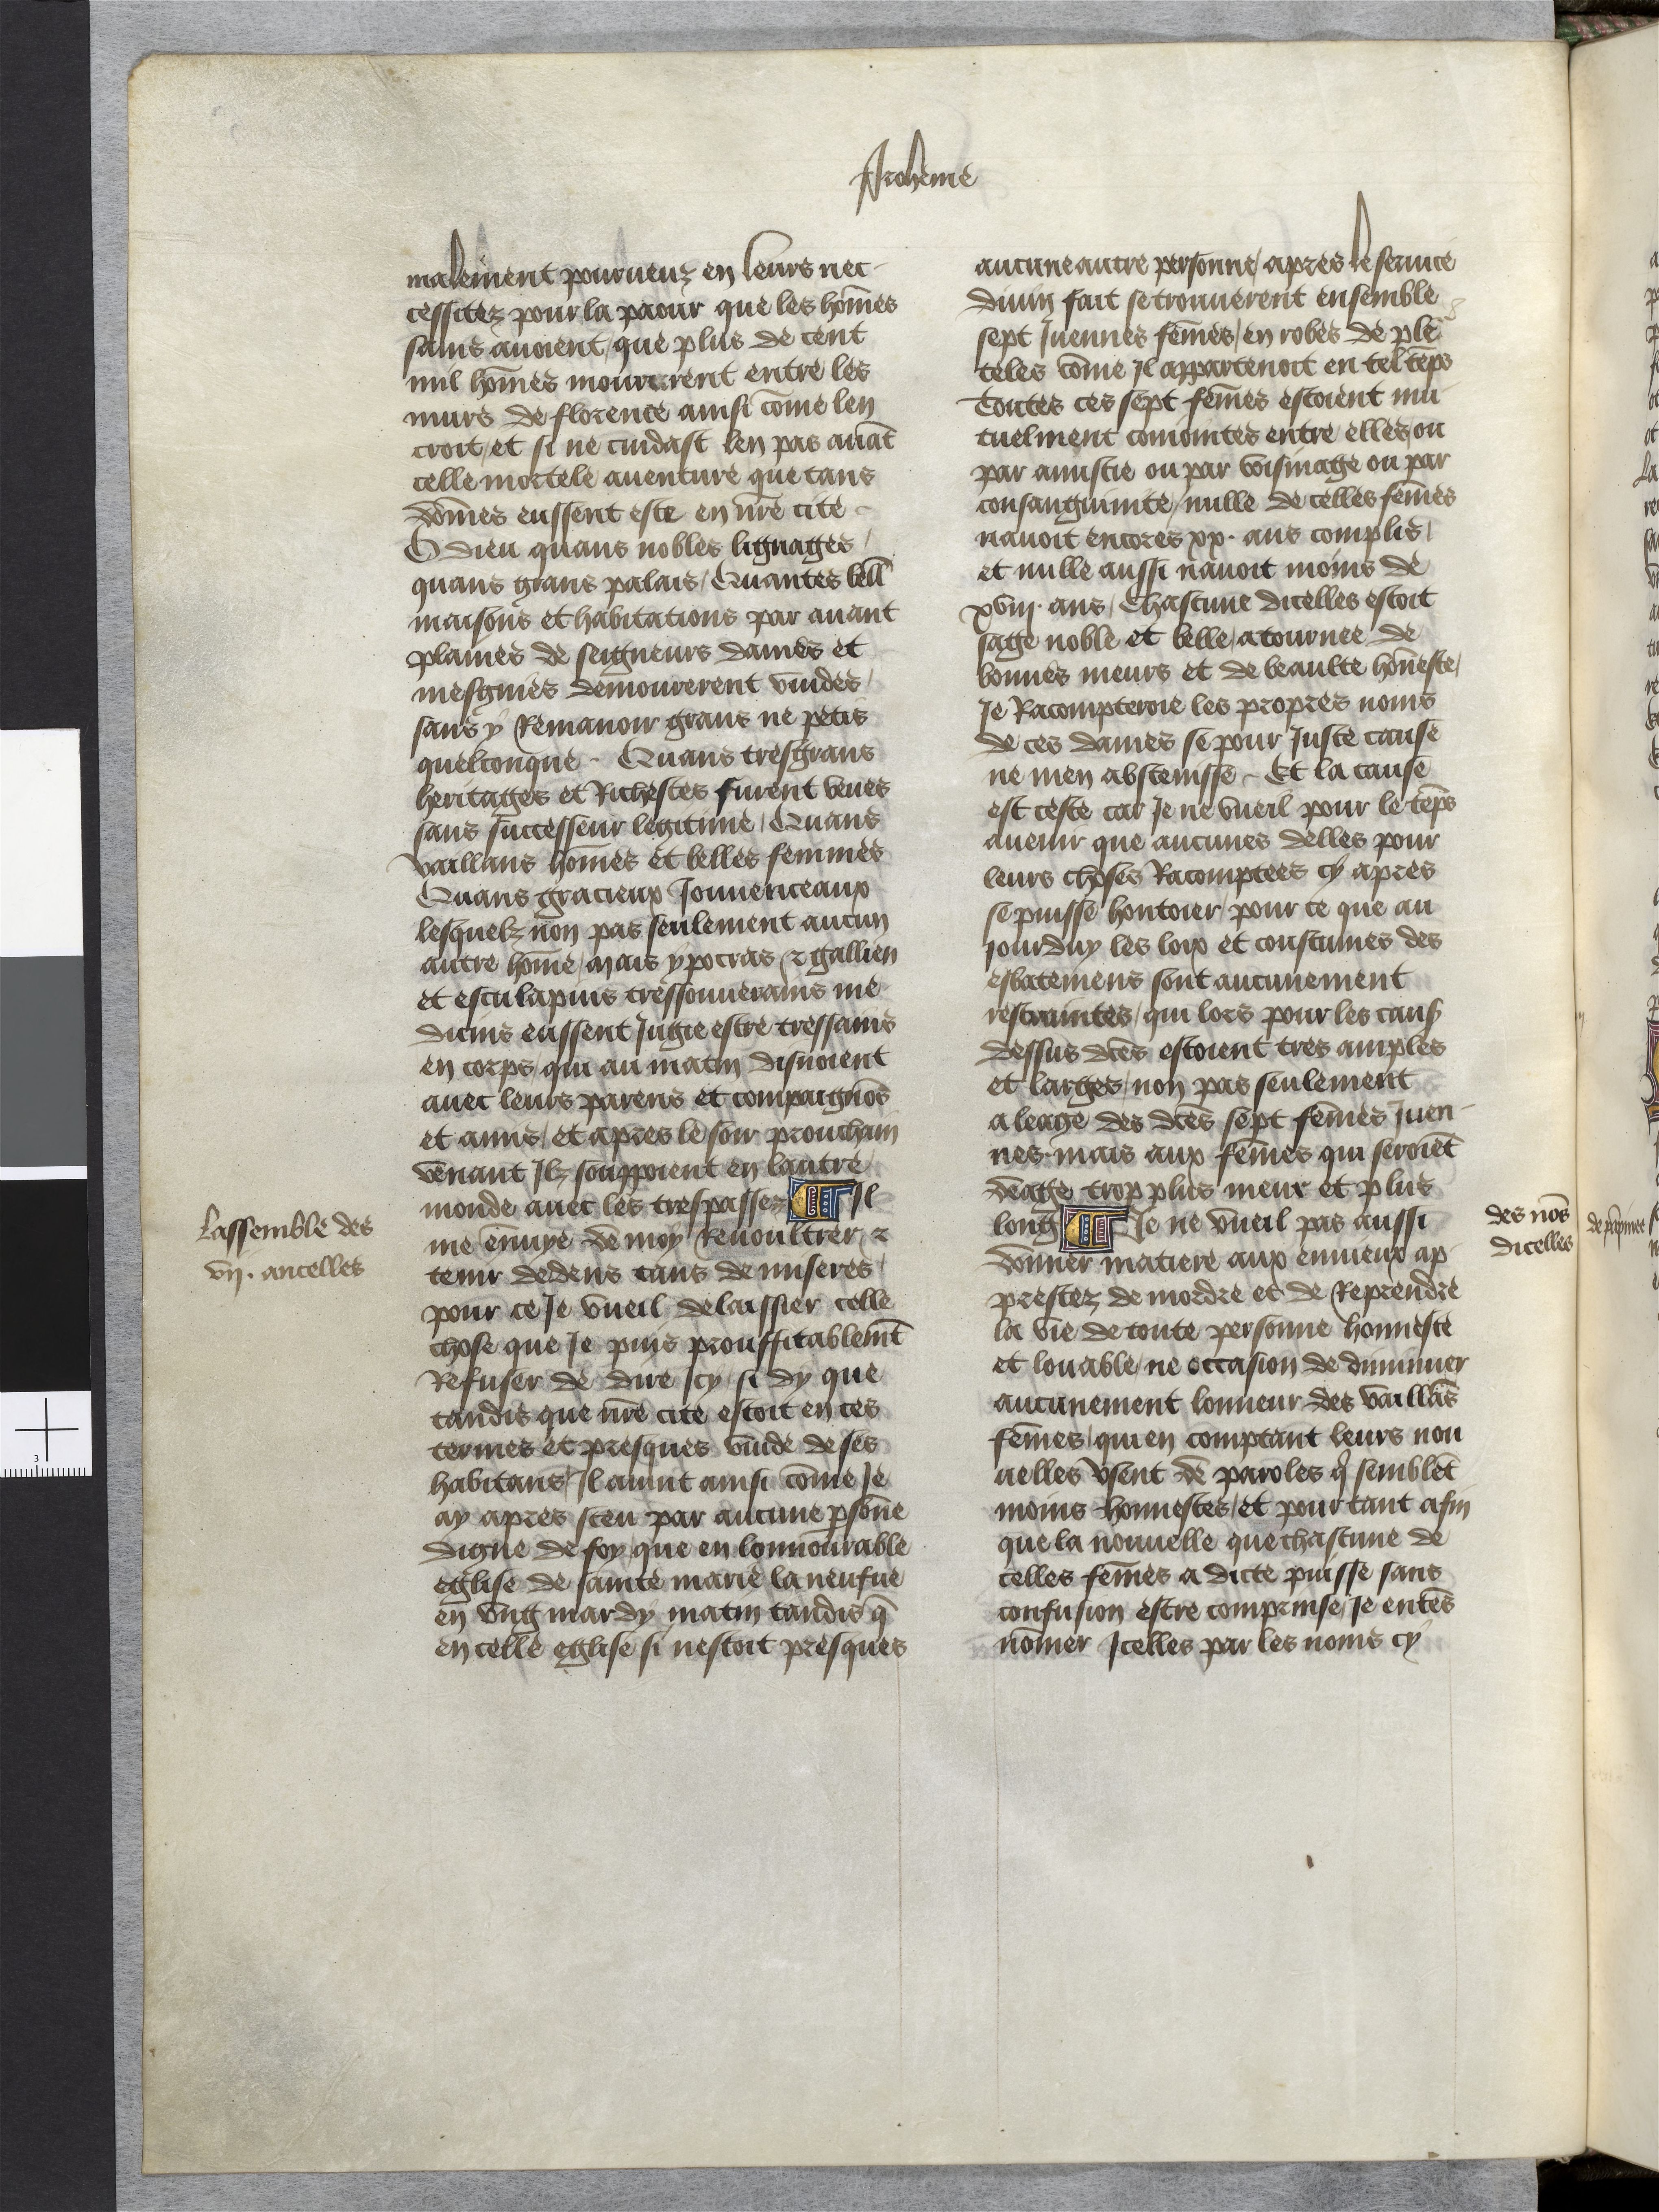 Proheme
malement pourueuz en leurs nec-
cessitez pour la paour que les hōmes
sains auoient / que plus de cent
mil hōmes moururent entre les
murs de florence ainsi cōme len
croit / et si ne cuidast len pas auāt
celle mortele auenture que tans
dōmes eussent este en nr̄e cite -
O dieu quans nobles lignages /
quans grans palais / Quantes bell'
maisons et habitations par auant
plaines de seigneurs dames et
mesgnies demourerent vuides /
sans y Remanoir grans ne petis
quelconque - Quans tresgrans
heritages et Richesses furent veues
sans successeur legitime / Quans
vaillans hōmes et belles femmes
Quans gracieux Jouuenceaux
lesquelz non pas seulement aucun
autre hōme / mais ypocras ⁊ gallien
et esculapius tressouuerains me
dicins eussent Jugie estre tressains
en corps / qui au matin disnoient
auec leurs parens et compaignōs
et amis / et apres le soir prouchain
venant Jlz souppoient en lautre
monde auec les trespassez Il
me ēnuye de moy Renoultrer / ⁊
tenir dedens tans de miseres /
pour ce Je vueil delaissier celle
chose que Je puis prouffitablemt̄
Refuser de dire Jcy si dy que
tandis que nr̄e cite estoit en ces
termes et presques vuide de ses
habitans / Il auint ainsi cōme Je
ay apres sceu par aucune psōne
digne de foy / que en lonnourable
eglise de sainte marie la neufue
en vng mardy matin tandis q̄
en celle eglise si nestoit presques
Lassemble des
vij. ancelles
aucune autre personne / apres le seruice
diuin fait se trouuerent ensemble
sept Juennes fēmes / en robes de ple
teles cōme Jl appartenoit en tel tēps
Toutes ces sept fēmes estoient mu
tuelment conioinctes entre elles / ou
par amistie ou par voisinage ou par
consanguinite / nulle de celles fēmes
nauoit encores xx. ans complis /
et nulle aussi nauoit moins de
xviij. ans / Chascune dicelles estoit
sage noble et belle / atournee de
bonnes meurs et de beaulte hōneste /
Je Racompteroie les propres noms
de ces dames se pour Juste cause
ne men abstenisse - Et la cause
est ceste car Je ne vueil pour le tēps
auenir que aucunes delles pour
leurs choses Racomptees cy apres
se puisse hontoier / pour ce que au
jourduy les loix et coustumes des
esbatemens sont aucunement
restraintes / qui lors pour les caus
dessus dc̄es estoient tres amples
et larges / non pas seulement
a leage des dc̄es sept fēmes Juen-
nes. mais aux fēmes qui seroiēt
deage trop plus meur et plus
long Je ne vueil pas aussi
donner matiere aux enuieux ap
prestez de mordre et de Reprendre
la vie de toute personne honneste
et louable / ne occasion de diminuer
aucunement lonneur des vaillās
fēmes / qui en comptant leurs nou
uelles vsent de paroles q̄ semblēt
moins honnestes / et pour tant afin
que la nouuelle que chascune de
celles fēmes a dicte puisse sans
confusion estre comprinse / Je entēs
nōmer Jcelles par les noms cy
des nōs
dicelles